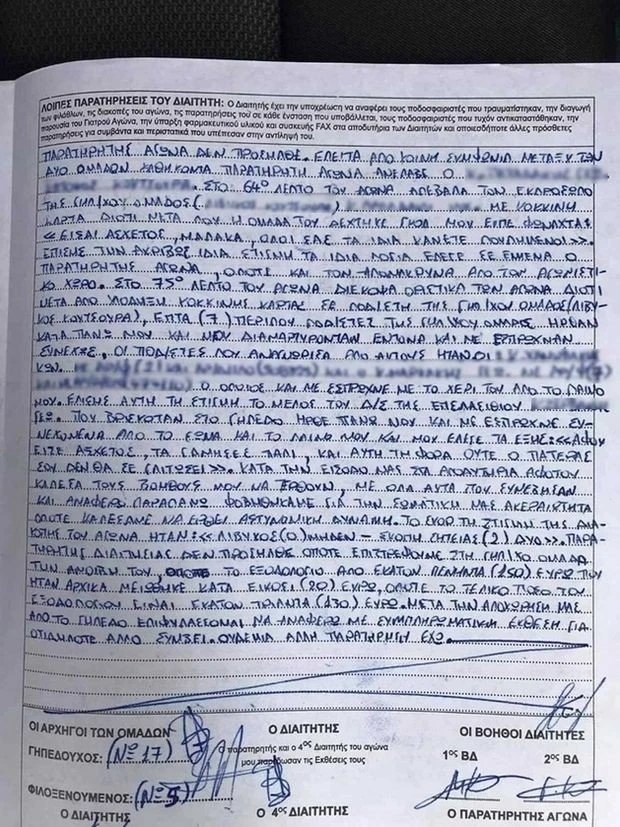 ΛΟΙΠΕΣ ΠΑΡΑΤΗΡΗΣΕΙΣ ΤΟΥ ΔΙΑΙΤΗΤΗ: Ο Διαιτητής έχει την υποχρέωση να αναφέρει τους ποδοσφαιριστές που τραυματίστηκαν, την διαγωγή
των φιλάθλων, τις διακοπές του αγώνα, τις παρατηρήσεις του σε κάθε ένσταση που υποβάλλεται, τους ποδοσφαιριστές που τυχόν αντικαταστάθηκαν, την
παρουσία του Γιατρού Αγώνα, την ύπαρξη φαρμακευτικού υλικού και συσκευής FAX στα αποδυτήρια των Διαιτητών και οποιεσδήποτε άλλες πρόσθετες
παρατηρήσεις για συμβάντα και περιστατικά που υπέπεσαν στην αντίληψή του.
ΠΑΡΑΤΗΡΗΤΗΣ ΑΓΩΝΑ ΔΕΝ ΠΡΟΣΗΛΘΕ. ΕΠΕΙΤΑ ΑΠΟ ΚΟΙΝΗ ΣΥΜΦΩΝΙΑ ΜΕΤΑΞΥ ΤΩΝ
ΔΥΟ ΟΜΑΔΩΝ ΚΑΘΗΚΟΝΤΑ ΠΑΡΑΤΗΡΗΤΗ ΑΓΩΝΑ ΑΝΕΛΑΒΕ Ο
ΣΤΟ 64° ΛΕΠΤΟ ΤΟΥ ΑΓΩΝΑ ΑΠΕΒΑΛΑ ΤΟΝ ΕΚΠΡΟΣΩΠΟ
ΤΗΣ ΓΗΠ/ΧΟΥ ΟΜΑΔΟΣ ( ΜΕ ΚΟΚΚΙΝΗ
ΚΑΡΤΑ ΔΙΟΤΙ ΜΕΤΑ ΠΟΥ Η ΟΜΑΔΑ ΤΟΥ ΔΕΧΤΗΚΕ ΓΚΟΛ ΜΟΥ ΕΙΠΕ ΦΩΝΑΧΤΑ:
«ΕΙΣΑΙ ΑΣΧΕΤΟΣ, ΜΑΛΑΚΑ, ΟΛΟΙ ΣΑΣ ΤΑ ΙΔΙΑ ΚΑΝΕΤΕ ΠΟΥΛΗΜΕΝΟΙ».
ΕΠΙΣΗΣ ΤΗΝ ΑΚΡΙΒΩΣ ΙΔΙΑ ΣΤΙΓΜΗ ΤΑ ΙΔΙΑ ΛΟΓΙΑ ΕΛΕΓΕ ΣΕ ΕΜΕΝΑ Ο
ΠΑΡΑΤΗΡΗΤΗΣ ΑΓΩΝΑ, ΟΠΟΤΕ ΚΑΙ ΤΟΝ ΑΠΟΜΑΚΡΥΝΑ ΑΠΟ ΤΟΝ ΑΓΩΝΙΣΤΙ-
ΚΟ ΧΩΡΟ. ΣΤΟ 75° ΛΕΠΤΟ ΤΟΥ ΑΓΩΝΑ ΔΙΕΚΟΨΑ ΟΡΙΣΤΙΚΑ ΤΟΝ ΑΓΩΝΑ ΔΙΟΤΙ
ΜΕΤΑ ΑΠΟ ΥΠΟΔΕΙΞΗ ΚΟΚΚΙΝΗΣ ΚΑΡΤΑΣ ΣΕ ΠΟΔ/ΣΤΗ ΤΗΣ ΓΗΠ/ΧΟΥ ΟΜΑΔΟΣ (ΛΙΒΥ-
ΚΟΣ ΚΟΥΤΣΟΥΡΑ), ΕΠΤΑ (7) ΠΕΡΙΠΟΥ ΠΟΔ/ΣΤΕΣ ΤΗΣ ΓΗΠ/ΧΟΥ ΟΜΑΔΟΣ ΗΡΘΑΝ
ΚΑΤΑ ΠΑΝΩ ΜΟΥ ΚΑΙ ΜΟΥ ΔΙΑΜΑΡΤΥΡΟΝΤΑΝ ΕΝΤΟΝΑ ΚΑΙ ΜΕ ΕΣΠΡΩΧΝΑΝ
ΣΥΝΕΧΩΣ. ΟΙ ΠΟΔ/ΣΤΕΣ ΠΟΥ ΑΝΑΓΝΩΡΙΣΑ ΑΠΟ ΑΥΤΟΥΣ ΗΤΑΝ ΟΙ
Ο ΟΠΟΙΟΣ ΚΑΙ ΜΕ ΕΣΠΡΩΧΝΕ ΜΕ ΤΟ ΧΕΡΙ ΤΟΥ ΑΠΟ ΤΟ ΛΑΙΜΟ
ΜΟΥ. ΕΠΙΣΗΣ ΑΥΤΗ ΤΗ ΣΤΙΓΜΗ ΤΟ ΜΕΛΟΣ ΤΟΥ Δ/Σ ΤΗΣ ΕΠΣ ΛΑΣΙΘΙΟΥ
ΠΟΥ ΒΡΙΣΚΟΤΑΝ ΣΤΟ ΓΗΠΕΔΟ ΗΡΘΕ ΠΑΝΩ ΜΟΥ ΚΑΙ ΜΕ ΕΣΠΡΩΧΝΕ ΣΥ-
ΝΕΧΟΜΕΝΑ ΑΠΟ ΤΟ ΣΩΜΑ ΚΑΙ ΤΟ ΛΑΙΜΟ ΜΟΥ ΚΑΙ ΜΟΥ ΕΛΕΓΕ ΤΑ ΕΞΗΣ: «ΑΦΟΥ
ΕΙΣΑΙ ΑΣΧΕΤΟΣ, ΤΑ ΓΑΜΗΣΕΣ ΠΑΛΙ, ΚΑΙ ΑΥΤΗ ΤΗ ΦΟΡΑ ΟΥΤΕ Ο ΠΑΤΕΡΑΣ
ΣΟΥ ΔΕΝ ΘΑ ΣΕ ΓΛΙΤΩΣΕΙ». ΚΑΤΑ ΤΗΝ ΕΙΣΟΔΟ ΜΑΣ ΣΤΑ ΑΠΟΔΥΤΗΡΙΑ ΑΦΟΤΟΥ
ΚΑΛΕΣΑ ΤΟΥΣ ΒΟΗΘΟΥΣ ΜΟΥ ΝΑ ΕΡΘΟΥΝ, ΜΕ ΟΛΑ ΑΥΤΑ ΠΟΥ ΣΥΝΕΒΗΣΑΝ
ΚΑΙ ΑΝΑΦΕΡΩ ΠΑΡΑΠΑΝΩ ΦΟΒΗΘΗΚΑΜΕ ΓΙΑ ΤΗΝ ΣΩΜΑΤΙΚΗ ΜΑΣ ΑΚΕΡΑΙΟΤΗΤΑ
ΟΠΟΤΕ ΚΑΛΕΣΑΜΕ ΝΑ ΕΡΘΕΙ ΑΣΤΥΝΟΜΙΚΗ ΔΥΝΑΜΗ. ΤΟ ΣΚΟΡ ΤΗ ΣΤΙΓΜΗ ΤΗΣ ΔΙΑ-
ΚΟΠΗΣ ΤΟΥ ΑΓΩΝΑ ΗΤΑΝ: «ΛΙΒΥΚΟΣ (0) ΜΗΔΕΝ - ΣΚΟΠΗ ΣΗΤΕΙΑΣ (2) ΔΥΟ». ΠΑΡΑ-
ΤΗΡΗΤΗΣ ΔΙΑΙΤΗΣΙΑΣ ΔΕΝ ΠΡΟΣΗΛΘΕ ΟΠΟΤΕ ΕΠΙΣΤΡΕΨΑΜΕ ΣΤΗ ΓΗΠ/ΧΟ ΟΜΑΔΑ
ΤΗΝ ΑΜΟΙΒΗ ΤΟΥ, ΟΠΟΤΕ ΤΟ ΕΞΟΔΟΛΟΓΙΟ ΑΠΟ ΕΚΑΤΟΝ ΠΕΝΗΝΤΑ (150) ΕΥΡΩ ΠΟΥ
ΗΤΑΝ ΑΡΧΙΚΑ ΜΕΙΩΘΗΚΕ ΚΑΤΑ ΕΙΚΟΣΙ (20) ΕΥΡΩ, ΟΠΟΤΕ ΤΟ ΤΕΛΙΚΟ ΠΟΣΟ ΤΟΥ
ΕΞΟΔΟΛΟΓΙΟΥ ΕΙΝΑΙ ΕΚΑΤΟΝ ΤΡΙΑΝΤΑ (130) ΕΥΡΩ. ΜΕΤΑ ΤΗΝ ΑΠΟΧΩΡΗΣΗ ΜΑΣ
ΑΠΟ ΤΟ ΓΗΠΕΔΟ ΕΠΙΦΥΛΑΣΣΟΜΑΙ ΝΑ ΑΝΑΦΕΡΩ ΜΕ ΣΥΜΠΛΗΡΩΜΑΤΙΚΗ ΕΚΘΕΣΗ ΓΙΑ
ΟΤΙΔΗΠΟΤΕ ΑΛΛΟ ΣΥΜΒΕΙ. ΟΥΔΕΜΙΑ ΑΛΛΗ ΠΑΡΑΤΗΡΗΣΗ ΕΧΩ.
ΟΙ ΑΡΧΗΓΟΙ ΤΩΝ ΟΜΑΔΩΝ Ο ΔΙΑΙΤΗΤΗΣ ΟΙ ΒΟΗΘΟΙ ΔΙΑΙΤΗΤΕΣ
ΓΗΠΕΔΟΥΧΟΣ: (Νο 17) Ο παρατηρητής και ο 4ος Διαιτητής του αγώνα 1ος ΒΔ 2ος ΒΔ
μου παρέδωσαν τις Εκθέσεις τους
ΦΙΛΟΞΕΝΟΥΜΕΝΟΣ: (Νο 5)
Ο ΔΙΑΙΤΗΤΗΣ Ο 4ος ΔΙΑΙΤΗΤΗΣ Ο ΠΑΡΑΤΗΡΗΤΗΣ ΑΓΩΝΑ